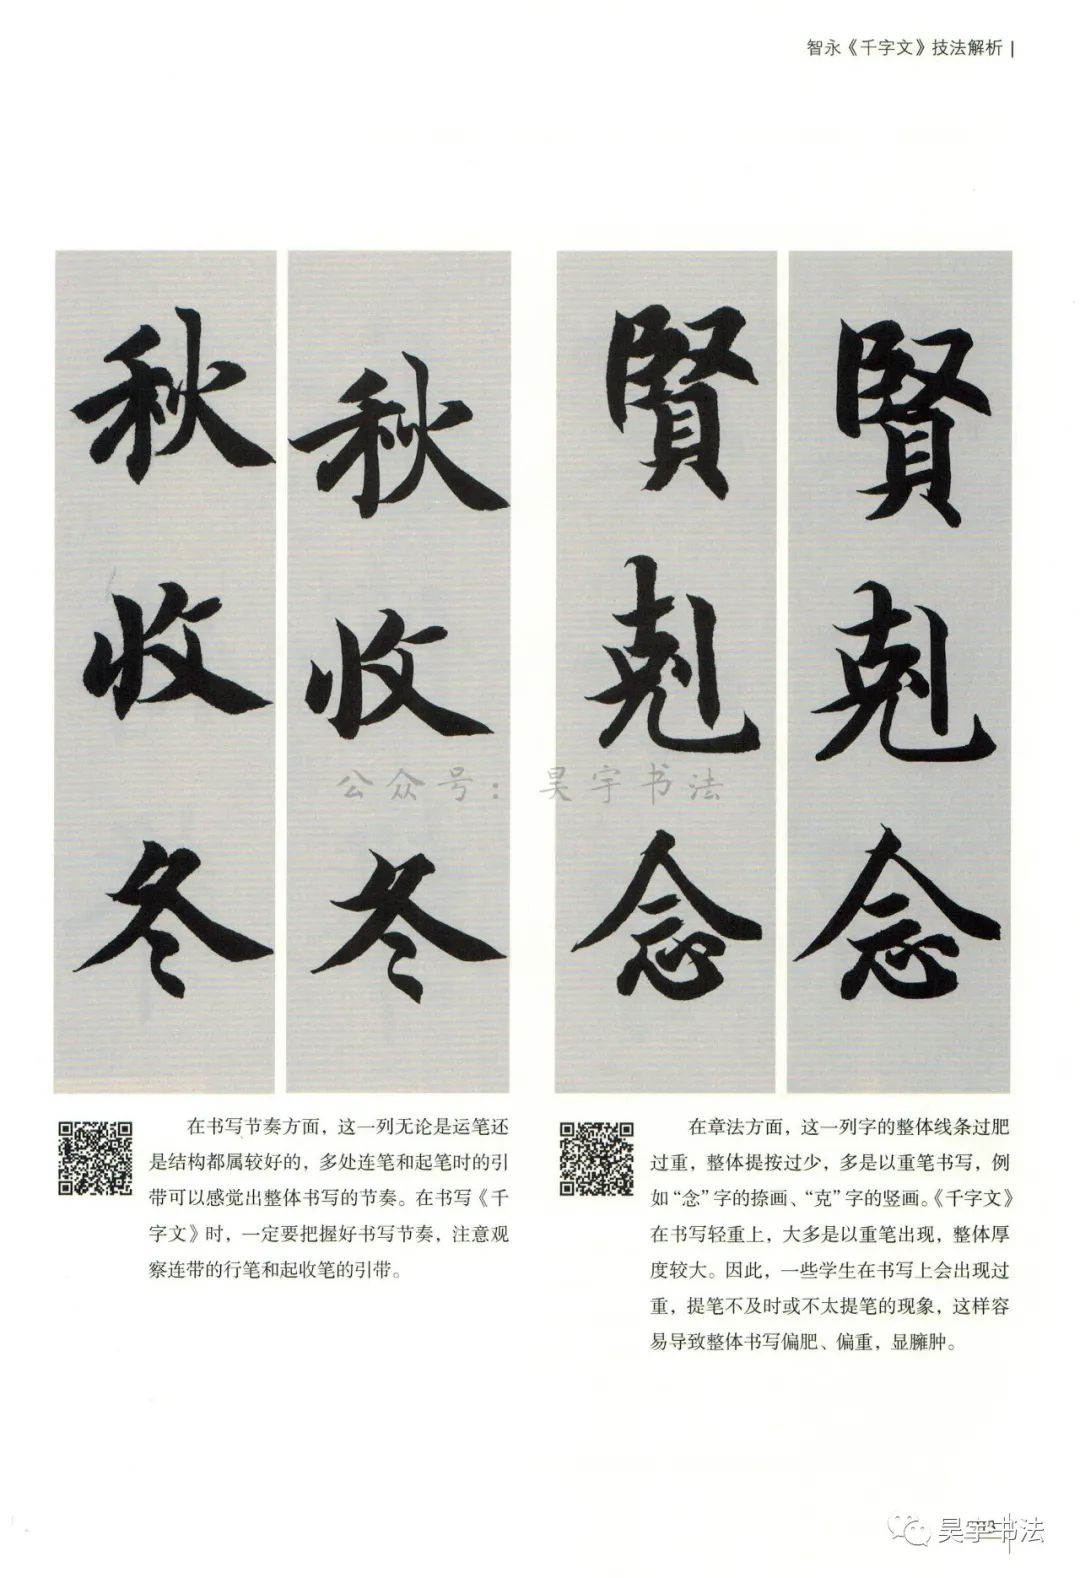 智永《千字文》技法解析
秋
收
冬
秋
收
冬
賢
剋
念
賢
剋
念
公众号：昊宇书法
在书写节奏方面，这一列无论是运笔还
是结构都属较好的，多处连笔和起笔时的引
带可以感觉出整体书写的节奏。在书写《千
字文》时，一定要把握好书写节奏，注意观
察连带的行笔和起收笔的引带。
在章法方面，这一列字的整体线条过肥
过重，整体提按过少，多是以重笔书写，例
如“念”字的捺画、“克”字的竖画。《千字文》
在书写轻重上，大多是以重笔出现，整体厚
度较大。因此，一些学生在书写上会出现过
重，提笔不及时或不太提笔的现象，这样容
易导致整体书写偏肥、偏重，显臃肿。
昊宇书法